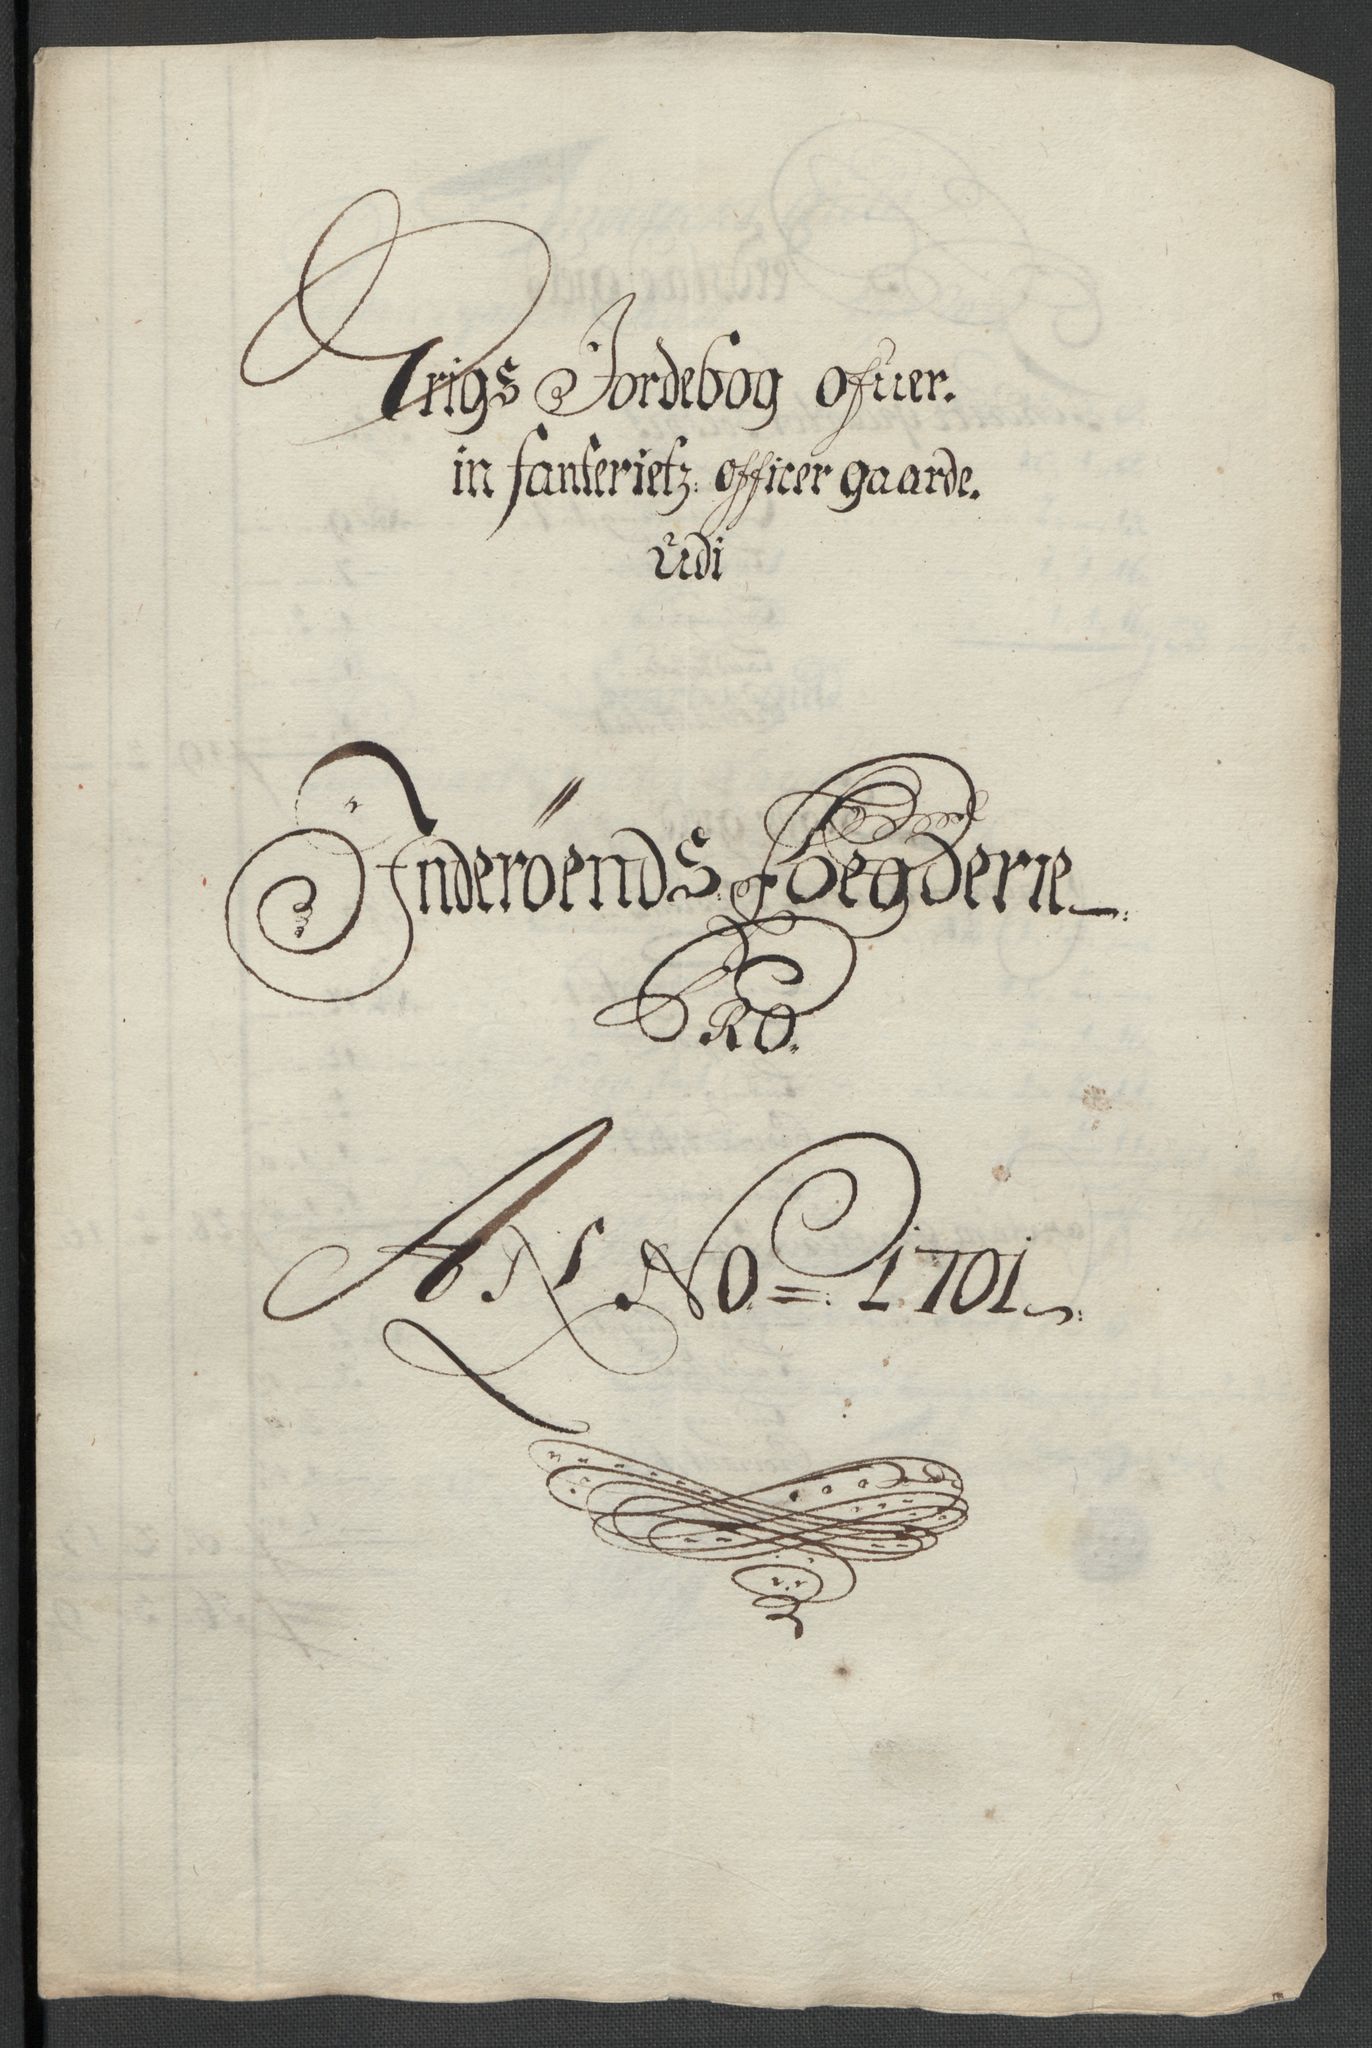 Krigs Jordebog ofuer.
in fanterietz officer gaarde.
udi
Inderöends. foegderie
PRO.
ANNO = 1701